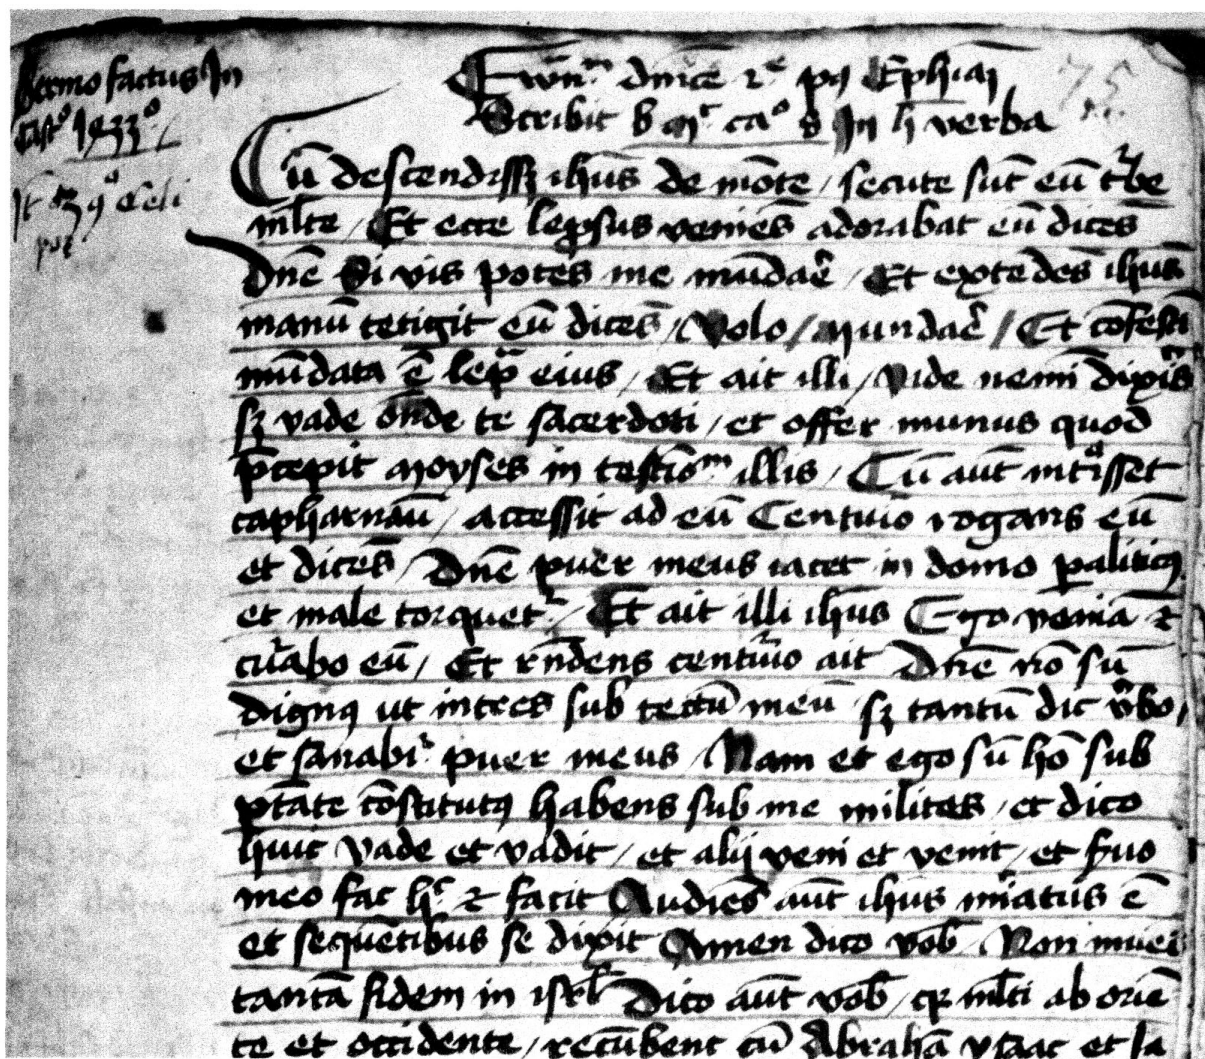 Sermo factus In
Cast° 1433°
Ewn^m dnice 2^e p9 Epħiaꝝ
Scribit b mt^s ca° 8 In h verba
Cū descendissꝫ ihūs de mōte / secute sūt eū t^rbe
ml̄te / Et ecce lep̄sus veniēs adorabat eū dicēs
Dn̄e Si vis potes me mūdar̄e / Et extēdēs ihūs
manū tetigit eū dicēs / Volo / Mundar̄e / Et cōfesti
mūdata ē lep^a eius / Et ait illi / Vide nemī dixis
sꝫ vade ōnde te sacerdoti / et offer munus quod
p̄cepit Moyses in testīo^m illis / Cū aūt int^aisset
capharnaū / accessit ad eū Centuīo rogans eū
et dicēs / Dn̄e puer meus iacet in domo paliticꝯ
et male torquet^r / Et ait illi ihūs Ego veniā ⁊
cu^rabo eū / Et rn̄dens centu^rio ait Dn̄e nō sū
dignꝯ ut intres sub tectū meū sꝫ tantū dic v̄bo /
et sanabi^r puer meus / Nam et ego sū hō sub
ptāte cōstitutꝯ habens sub me milites / et dico
huic Vade et vadit / et alij veni et venit / et s̄uo
meo fac h^c ⁊ facit Audiēs aūt ihūs mi^atus ē
et sequētibus se dixit Amen dico vob̄ / Non inuei
tantā fidem in isrl̄ Dico aūt vob̄ / qꝛ ml̄ti ab oriē
te et occidente / recūbent cū Abrahā ysaac et Ia